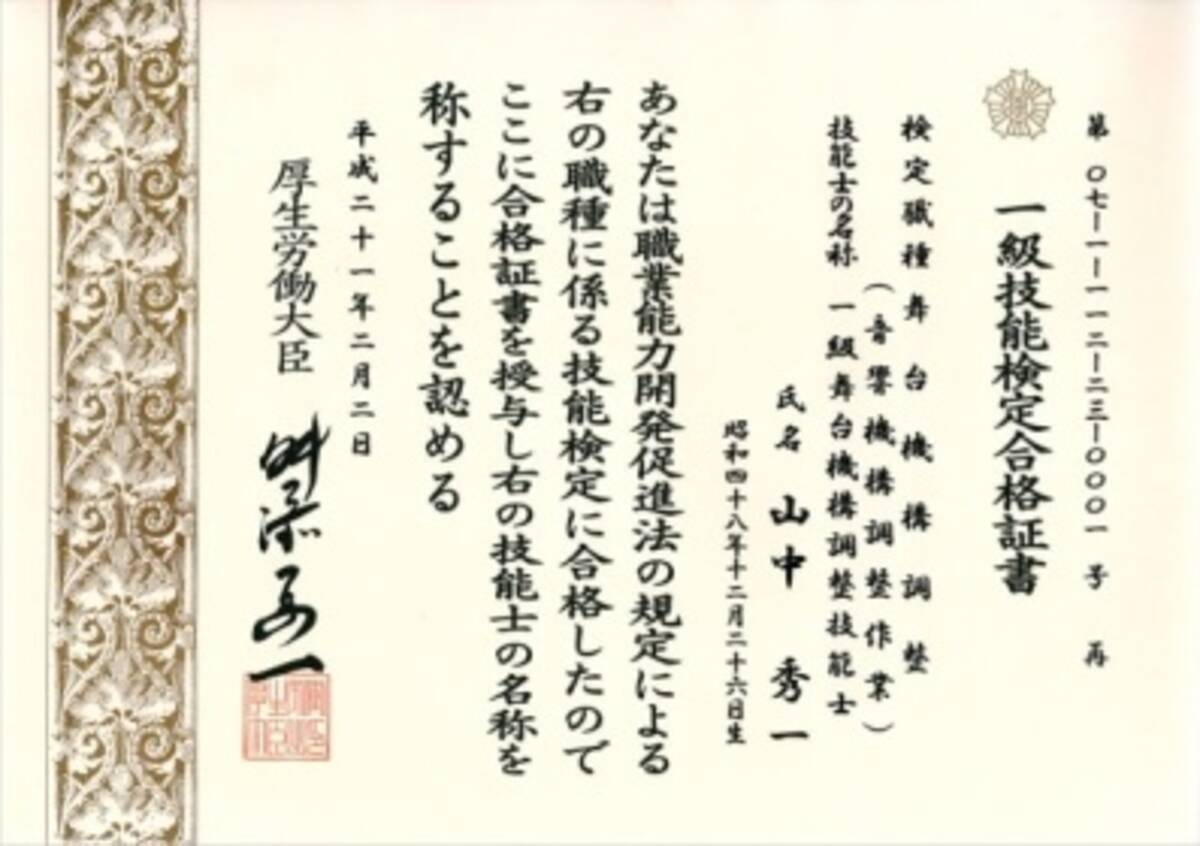 第〇七－一－一一二－二三－〇〇〇一号 再
一級技能検定合格証書
検定職種 舞台機構調整
（音響機構調整作業）
技能士の名称 一級舞台機構調整技能士
氏名 山中 秀一
昭和四十八年十二月二十六日生
あなたは職業能力開発促進法の規定による
右の職種に係る技能検定に合格したので
ここに合格証書を授与し右の技能士の名称を
称することを認める
平成二十一年二月二日
厚生労働大臣 舛添要一